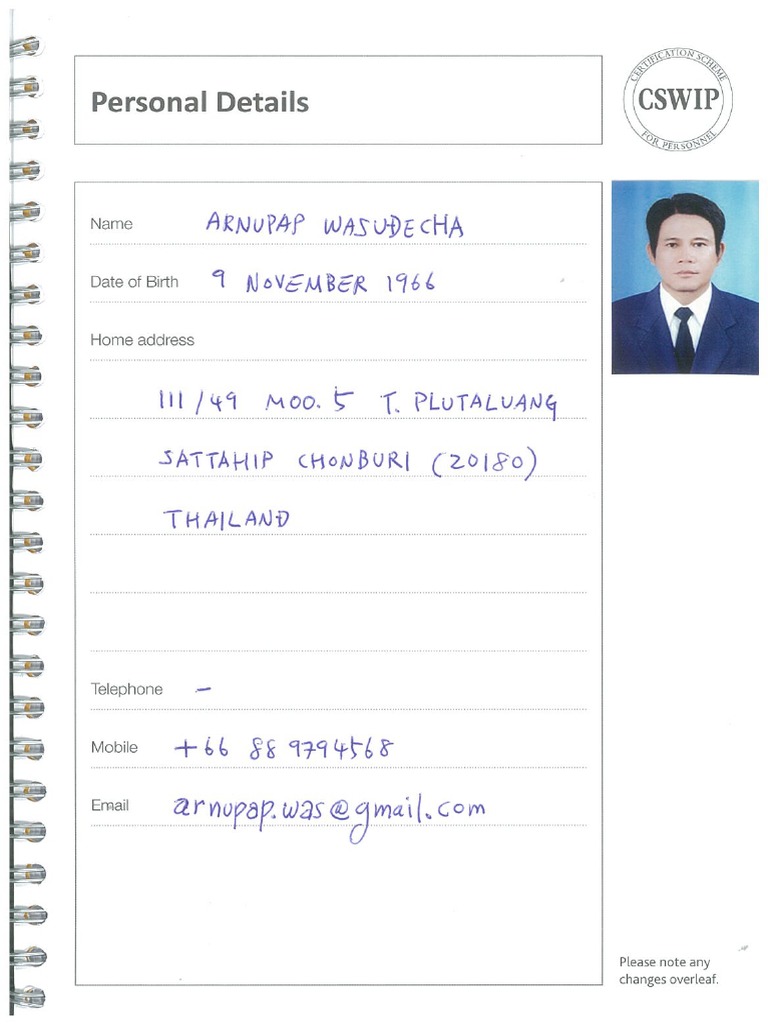 Personal Details
CERTIFICATION SCHEME
CSWIP
FOR PERSONNEL
Name ARNUPAP WASUDECHA
Date of Birth 9 NOVEMBER 1966
Home address
111/49 MOO. 5 T. PLUTALUANG
SATTAHIP CHONBURI (20180)
THAILAND
Telephone -
Mobile +66 88 9794568
Email arnupap.was@gmail.com
Please note any
changes overleaf.